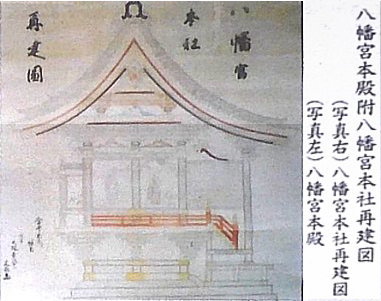 八幡宮本殿附八幡宮本社再建図
(写真右)八幡宮本社再建図
(写真左)八幡宮本殿
八幡宮
本社
再建圖